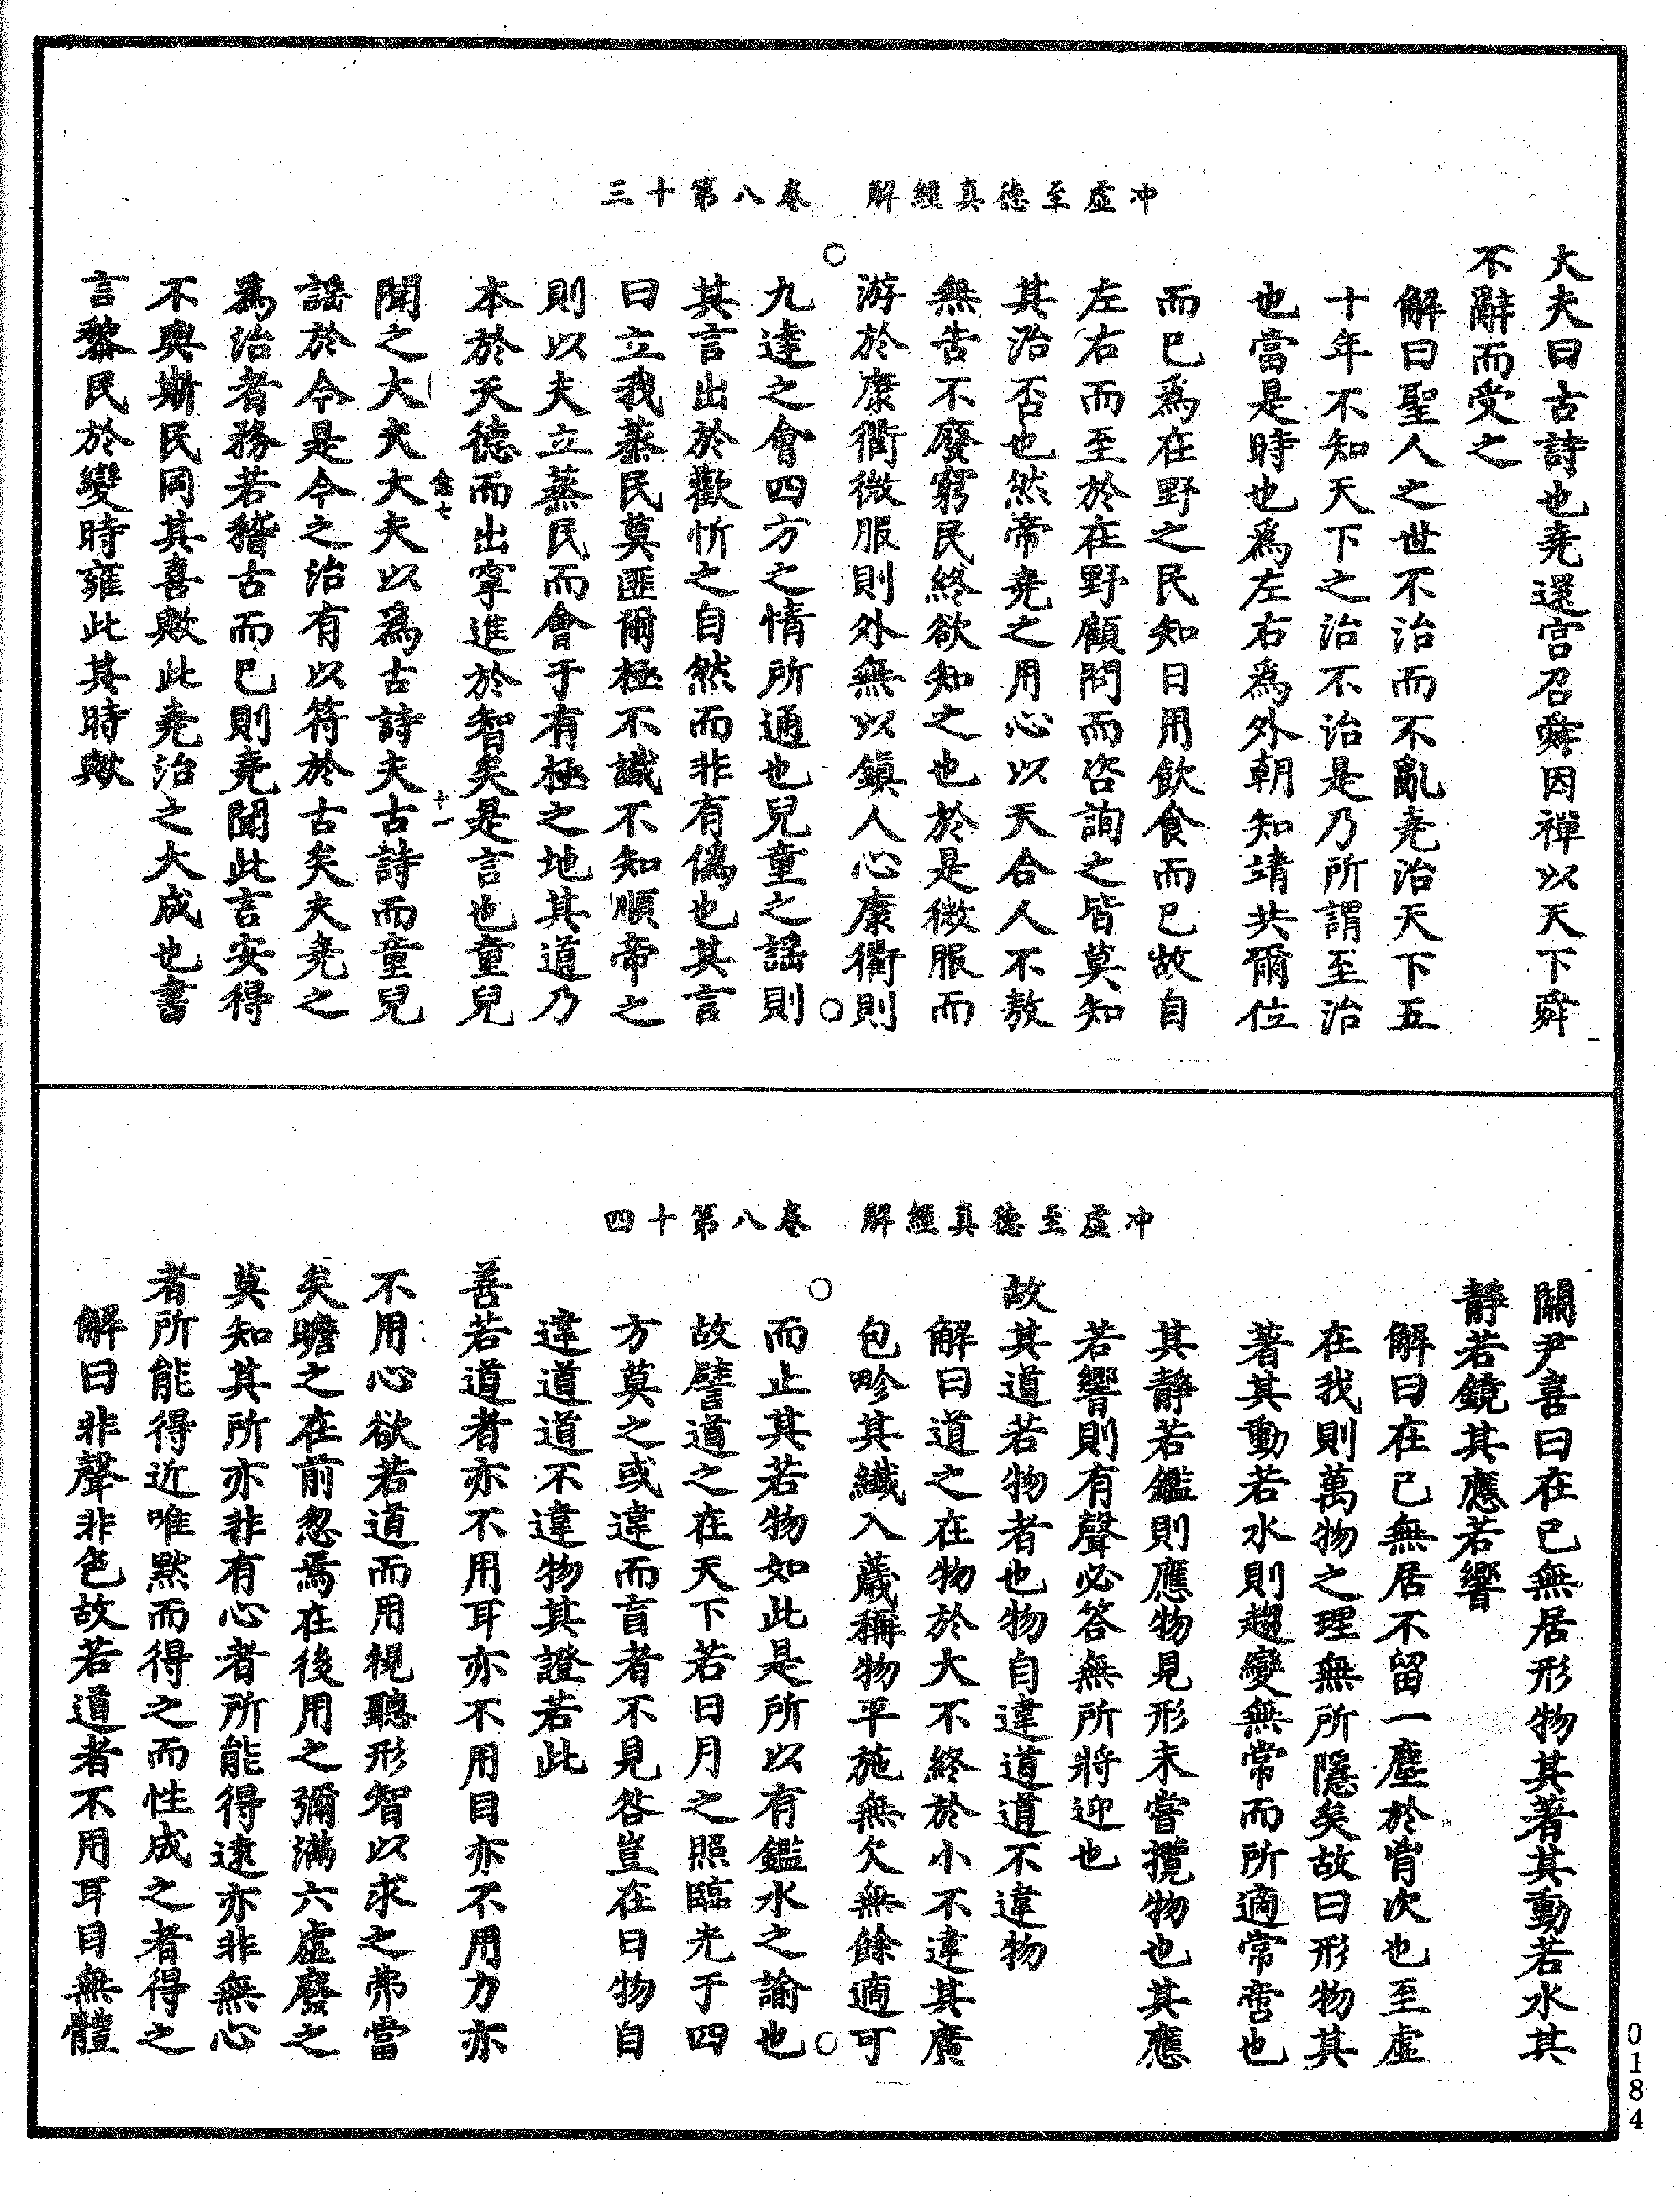 冲虛至德真經解　卷八第十三
大夫曰古詩也堯還宮召舜因禪以天下舜
不辭而受之
解曰聖人之世不治而不亂堯治天下五
十年不知天下之治不治是乃所謂至治
也當是時也爲左右爲外朝知靖共爾位
而已爲在野之民知日用飲食而已故自
左右而至於在野顧問而咨詢之皆莫知
其治否也然帝堯之用心以天合人不敖
無告不廢窮民終欲知之也於是微服而
游於康衢微服則外無以鎮人心康衢則
九逵之會四方之情所通也兒童之謡則
其言出於歡忻之自然而非有僞也其言
曰立我蒸民莫匪爾極不識不知順帝之
則以夫立蒸民而會于有極之地其道乃
本於天德而出寧進於智矣是言也童兒
念七　十一
聞之大夫大夫以爲古詩夫古詩而童兒
謡於今是今之治有以符於古矣夫堯之
爲治者務若稽古而已則堯聞此言安得
不與斯民同其喜歟此堯治之大成也書
言黎民於變時雍此其時歟
冲虛至德真經解　卷八第十四
關尹喜曰在己無居形物其著其動若水其
靜若鏡其應若響
解曰在己無居不留一塵於胷次也至虛
在我則萬物之理無所隱矣故曰形物其
著其動若水則趨變無常而所適常啻也
其靜若鑑則應物見形未嘗攬物也其應
若響則有聲必答無所將迎也
故其道若物者也物自違道道不違物
解曰道之在物於大不終於小不違其廣
包畛其纖入薉稱物平施無欠無餘適可
而止其若物如此是所以有鑑水之諭也
故譬道之在天下若日月之照臨光于四
方莫之或違而盲者不見咎豈在日物自
違道道不違物其證若此
善若道者亦不用耳亦不用目亦不用力亦
不用心欲若道而用視聽形智以求之弗當
矣瞻之在前忽焉在後用之彌滿六虛廢之
莫知其所亦非有心者所能得遠亦非無心
者所能得近唯默而得之而性成之者得之
解曰非聲非色故若道者不用耳目無體
0184